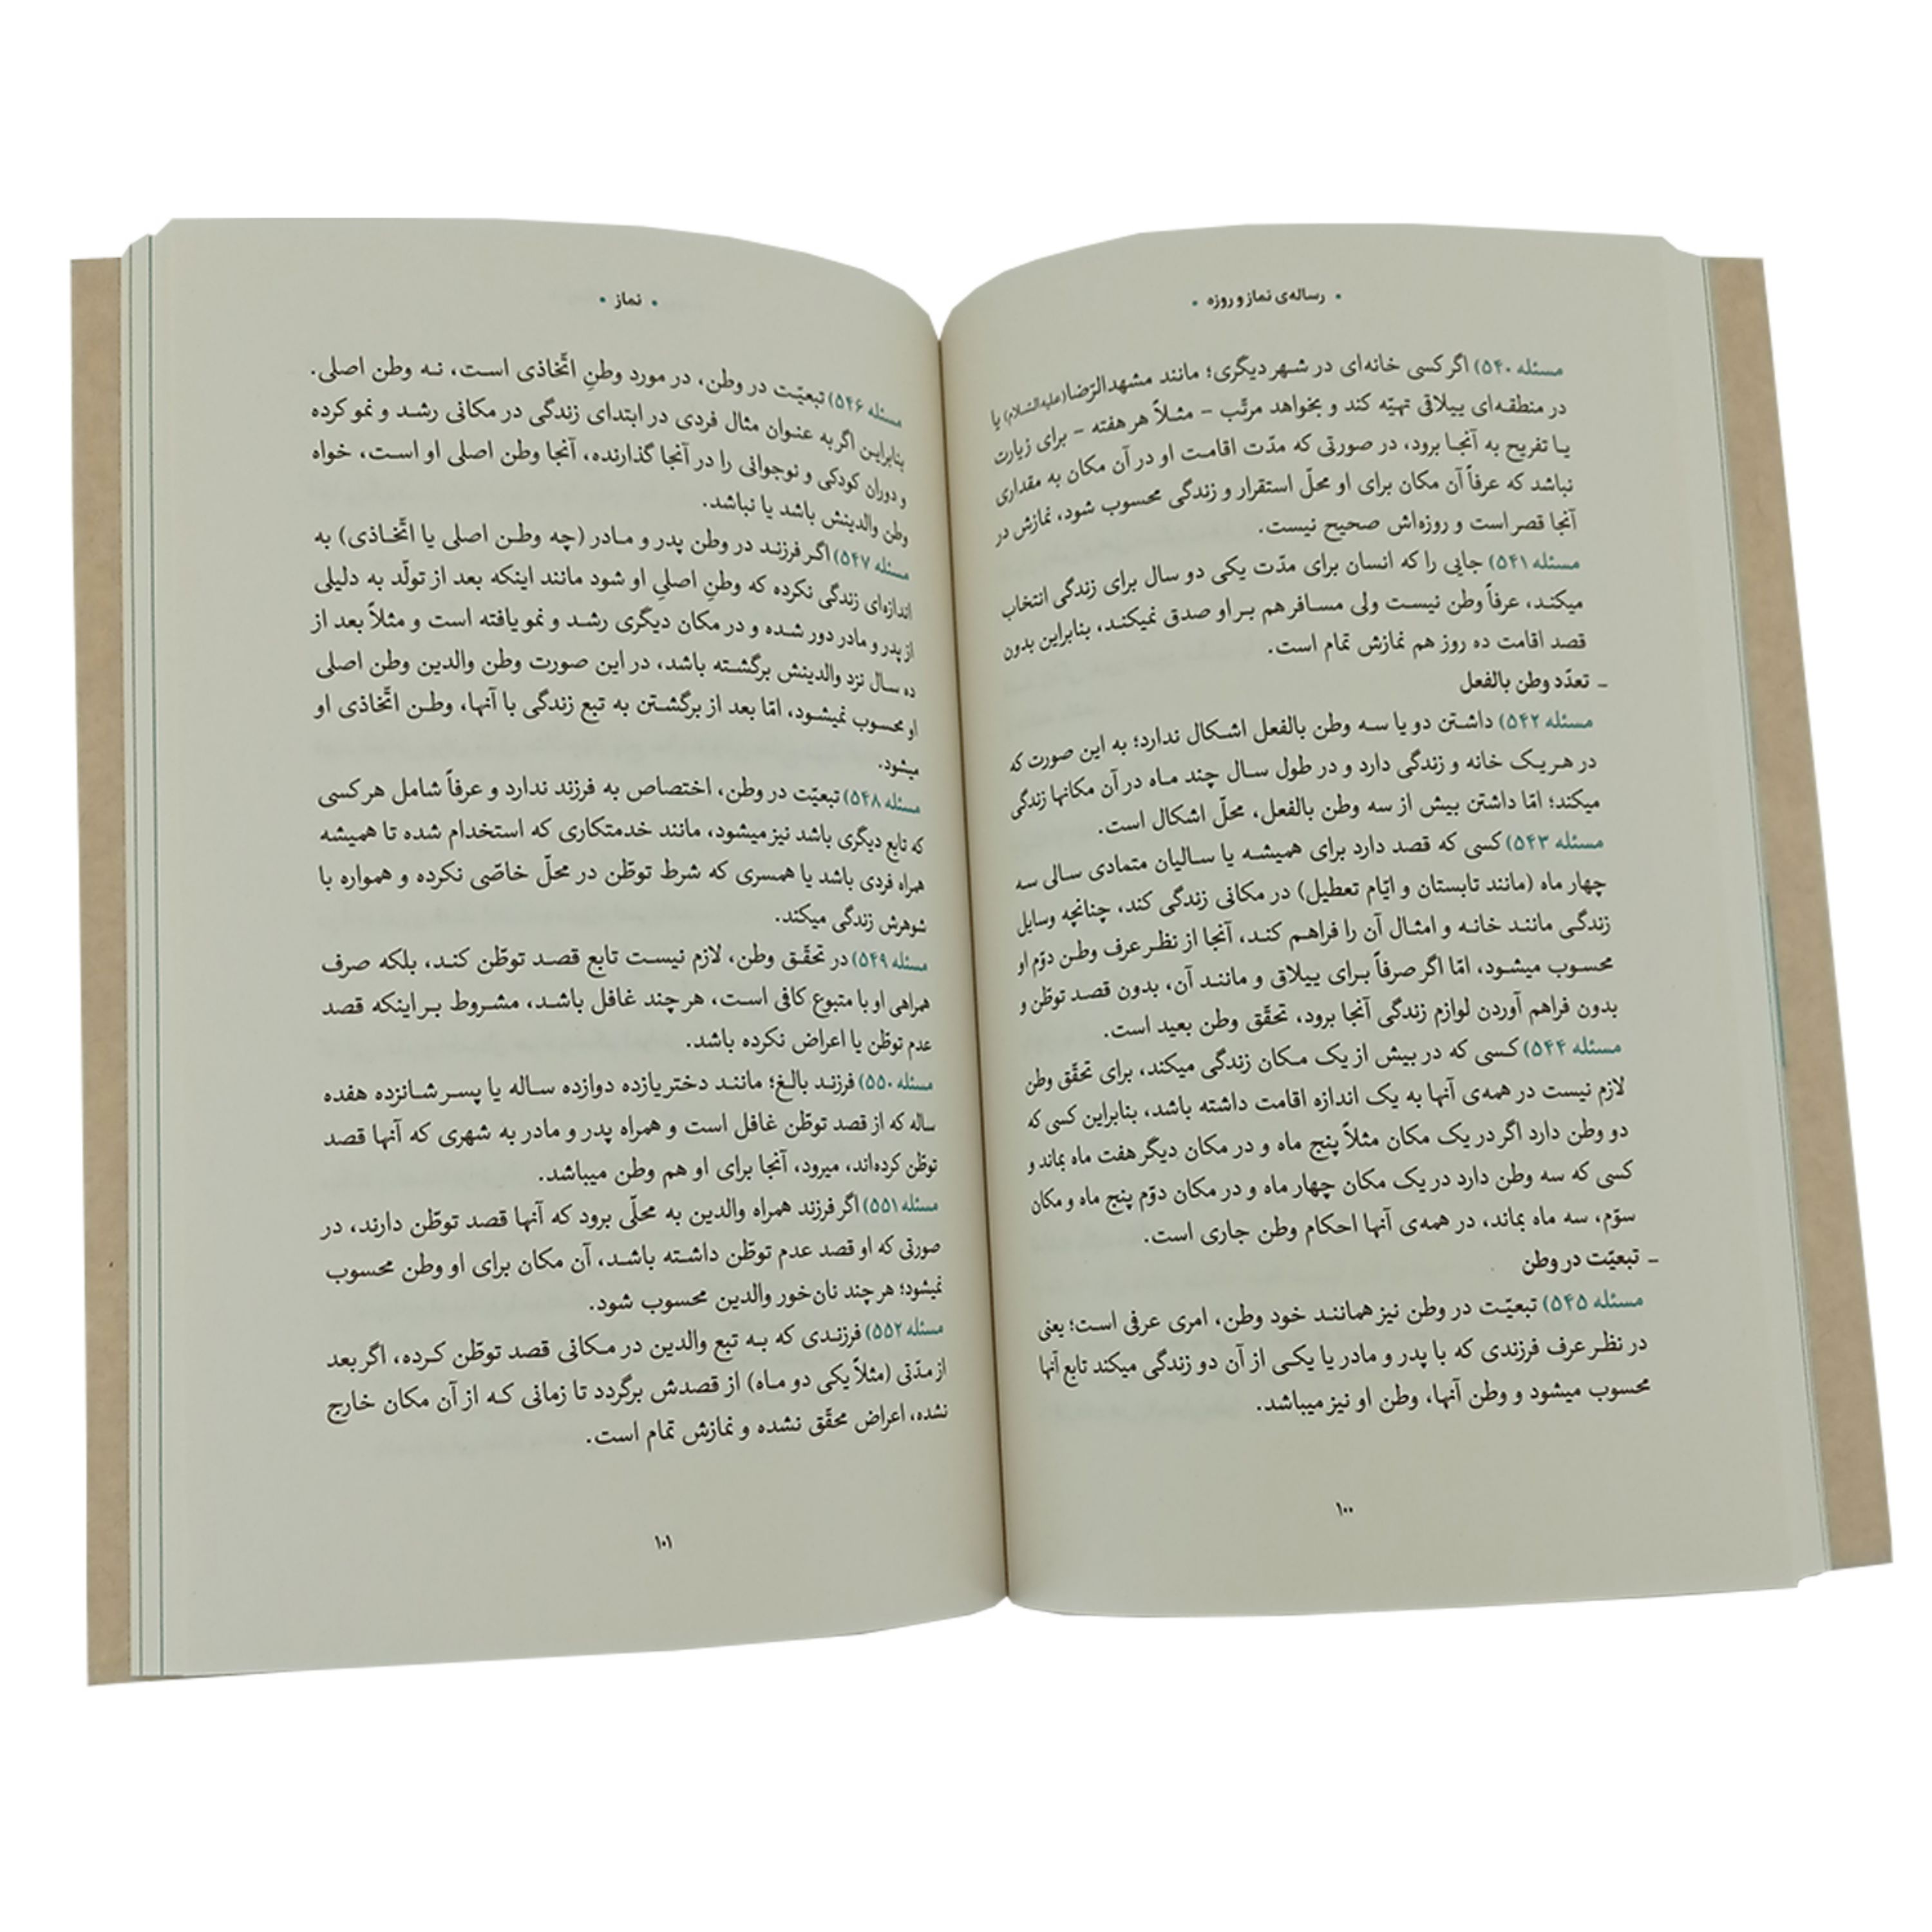 • رساله‌ی نماز و روزه •
مسئله ۵۴۰) اگر کسی خانه‌ای در شهر دیگری؛ مانند مشهدالرّضا(علیه‌السّلام) یا
در منطقه‌ای ییلاقی تهیّه کند و بخواهد مرتّب – مثلاً هر هفته – برای زیارت
یا تفریح به آنجا برود، در صورتی که مدّت اقامت او در آن مکان به مقداری
نباشد که عرفاً آن مکان برای او محلّ استقرار و زندگی محسوب شود، نمازش در
آنجا قصر است و روزه‌اش صحیح نیست.
مسئله ۵۴۱) جایی را که انسان برای مدّت یکی دو سال برای زندگی انتخاب
میکند، عرفاً وطن نیست ولی مسافر هم بر او صدق نمیکند، بنابراین بدون
قصد اقامت ده روز هم نمازش تمام است.
ـ تعدّد وطن بالفعل
مسئله ۵۴۲) داشتن دو یا سه وطن بالفعل اشکال ندارد؛ به این صورت که
در هریک خانه و زندگی دارد و در طول سال چند ماه در آن مکانها زندگی
میکند؛ امّا داشتن بیش از سه وطن بالفعل، محلّ اشکال است.
مسئله ۵۴۳) کسی که قصد دارد برای همیشه یا سالیان متمادی سالی سه
چهار ماه (مانند تابستان و ایّام تعطیل) در مکانی زندگی کند، چنانچه وسایل
زندگی مانند خانه و امثال آن را فراهم کند، آنجا از نظر عرف وطن دوّم او
محسوب میشود، امّا اگر صرفاً برای ییلاق و مانند آن، بدون قصد توطّن و
بدون فراهم آوردن لوازم زندگی آنجا برود، تحقّق وطن بعید است.
مسئله ۵۴۴) کسی که در بیش از یک مکان زندگی میکند، برای تحقّق وطن
لازم نیست در همه‌ی آنها به یک اندازه اقامت داشته باشد، بنابراین کسی که
دو وطن دارد اگر در یک مکان مثلاً پنج ماه و در مکان دیگر هفت ماه بماند و
کسی که سه وطن دارد در یک مکان چهار ماه و در مکان دوّم پنج ماه و مکان
سوّم، سه ماه بماند، در همه‌ی آنها احکام وطن جاری است.
ـ تبعیّت در وطن
مسئله ۵۴۵) تبعیّت در وطن نیز همانند خود وطن، امری عرفی است؛ یعنی
در نظر عرف فرزندی که با پدر و مادر یا یکی از آن دو زندگی میکند تابع آنها
محسوب میشود و وطن آنها، وطن او نیز میباشد.
۱۰۰
• نماز •
مسئله ۵۴۶) تبعیّت در وطن، در مورد وطنِ اتّخاذی است، نه وطن اصلی.
بنابراین اگر به عنوان مثال فردی در ابتدای زندگی در مکانی رشد و نمو کرده
و دوران کودکی و نوجوانی را در آنجا گذارنده، آنجا وطن اصلی او است، خواه
وطن والدینش باشد یا نباشد.
مسئله ۵۴۷) اگر فرزند در وطن پدر و مادر (چه وطن اصلی یا اتّخاذی) به
اندازه‌ای زندگی نکرده که وطنِ اصلیِ او شود مانند اینکه بعد از تولّد به دلیلی
از پدر و مادر دور شده و در مکان دیگری رشد و نمو یافته است و مثلاً بعد از
ده سال نزد والدینش برگشته باشد، در این صورت وطن والدین وطن اصلی
او محسوب نمیشود، امّا بعد از برگشتن به تبع زندگی با آنها، وطن اتّخاذی او
میشود.
مسئله ۵۴۸) تبعیّت در وطن، اختصاص به فرزند ندارد و عرفاً شامل هر کسی
که تابع دیگری باشد نیز میشود، مانند خدمتکاری که استخدام شده تا همیشه
همراه فردی باشد یا همسری که شرط توطّن در محلّ خاصّی نکرده و همواره با
شوهرش زندگی میکند.
مسئله ۵۴۹) در تحقّق وطن، لازم نیست تابع قصد توطّن کند، بلکه صرف
همراهی او با متبوع کافی است، هر چند غافل باشد، مشروط بر اینکه قصد
عدم توطّن یا اعراض نکرده باشد.
مسئله ۵۵۰) فرزند بالغ؛ مانند دختر یازده دوازده ساله یا پسر شانزده هفده
ساله که از قصد توطّن غافل است و همراه پدر و مادر به شهری که آنها قصد
توطّن کرده‌اند، میرود، آنجا برای او هم وطن میباشد.
مسئله ۵۵۱) اگر فرزند همراه والدین به محلّی برود که آنها قصد توطّن دارند، در
صورتی که او قصد عدم توطّن داشته باشد، آن مکان برای او وطن محسوب
نمیشود؛ هر چند نان‌خور والدین محسوب شود.
مسئله ۵۵۲) فرزندی که به تبع والدین در مکانی قصد توطّن کرده، اگر بعد
از مدّتی (مثلاً یکی دو ماه) از قصدش برگردد تا زمانی که از آن مکان خارج
نشده، اعراض محقّق نشده و نمازش تمام است.
۱۰۱